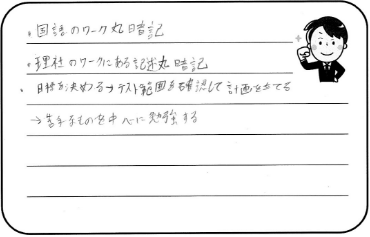 ・国語のワーク丸暗記
・理社のワークにある記述丸暗記
・日程を決める→テスト範囲を確認して計画を立てる
→苦手なものを中心に勉強する